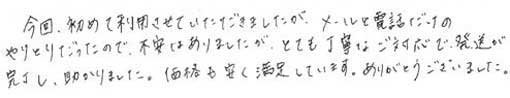 今回、初めて利用させていただきましたが、メールと電話だけの
やりとりだったので、不安はありましたが、とても丁寧なご対応で、発送が
完了し、助かりました。価格も安く満足しています。ありがとうございました。